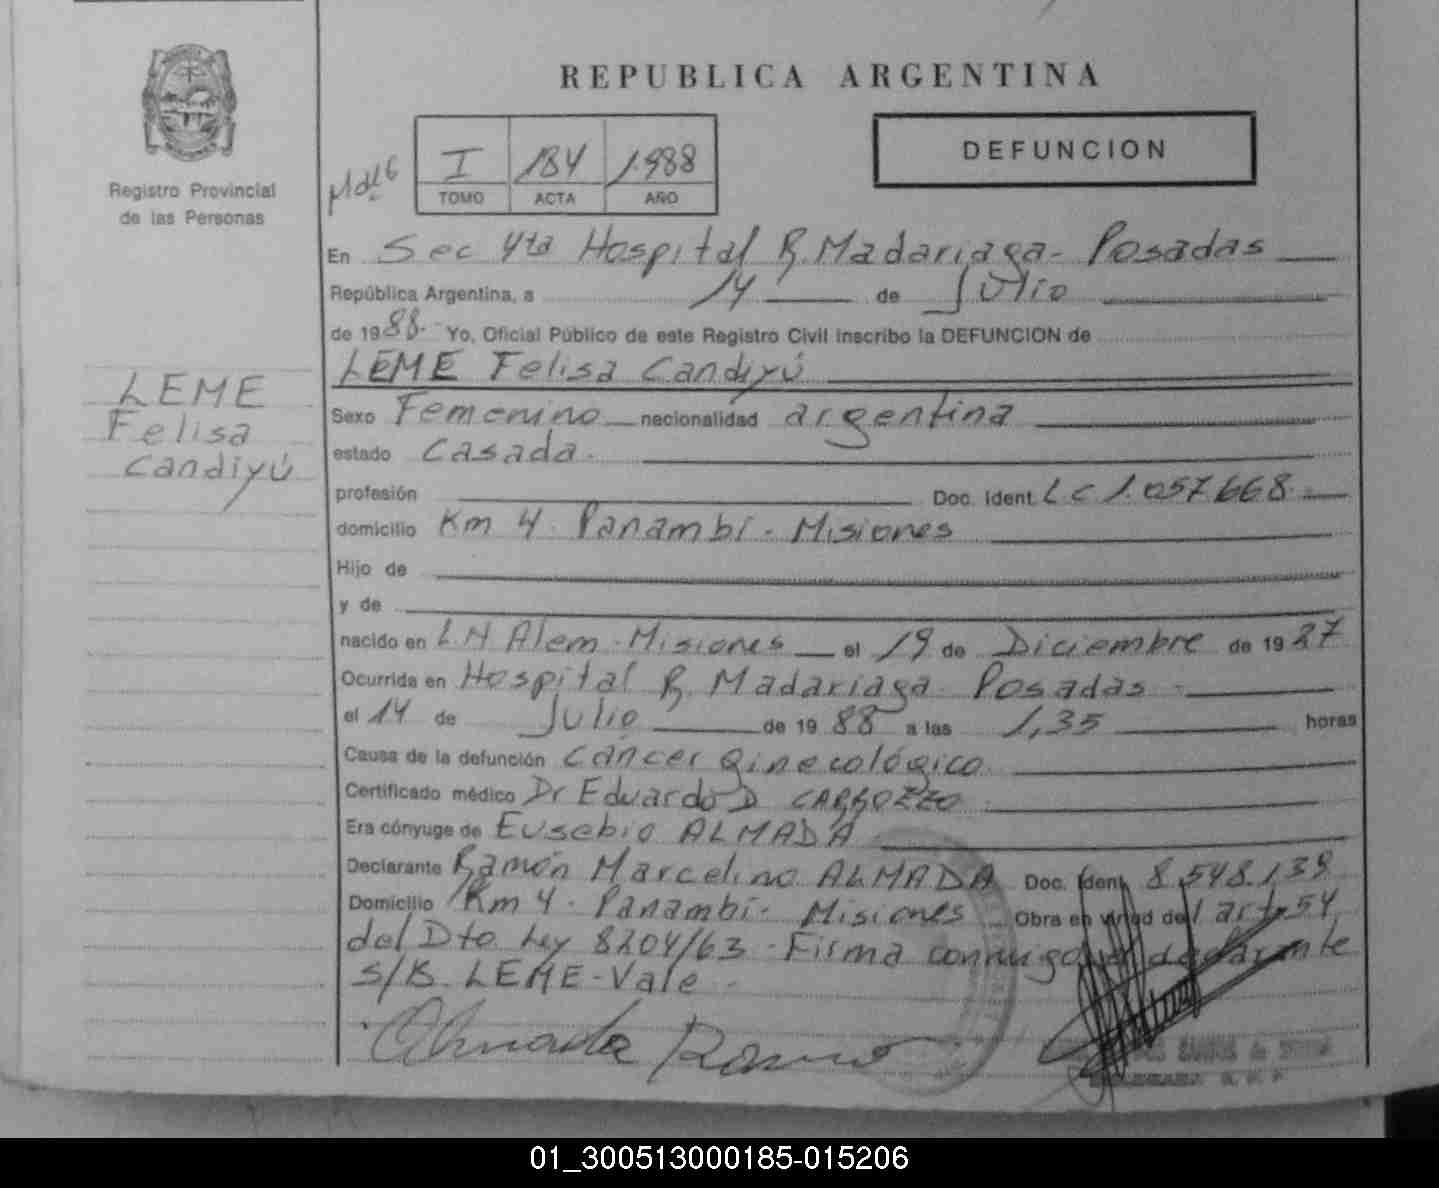 REPUBLICA ARGENTINA
DEFUNCION
Registro Provincial
de las Personas
I 184 1.988
TOMO ACTA AÑO
En Sec 4ta Hospital R. Madariaga - Posadas
República Argentina, a 14 de Julio
de 1988. Yo, Oficial Público de este Registro Civil inscribo la DEFUNCION de
LEME Felisa Candiyú
LEME
Felisa
Candiyú
Sexo Femenino nacionalidad argentina
estado Casada.
profesión Doc. Ident. L C 1.057.668
domicilio Km 4 - Panambí - Misiones
Hijo de
y de
nacido en L.N Alem - Misiones el 19 de Diciembre de 1927
Ocurrida en Hospital R. Madariaga - Posadas -
el 14 de Julio de 1988 a las 1,35 horas
Causa de la defunción Cáncer Ginecológico
Certificado médico Dr Eduardo D
Era cónyuge de Eusebio ALMADA
Declarante Ramón Marcelino ALMADA Doc. Ident. 8.548.139
Domicilio Km 4 - Panambí - Misiones Obra en virtud del art. 54
del Dto Ley 8204/63 - Firma conmigo el declarante
S/B. LEME - Vale
Almada Ramon
01_300513000185-015206